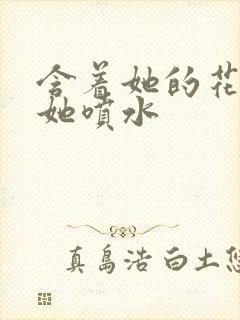 含着她的花
她喷水
真島浩 白土悠